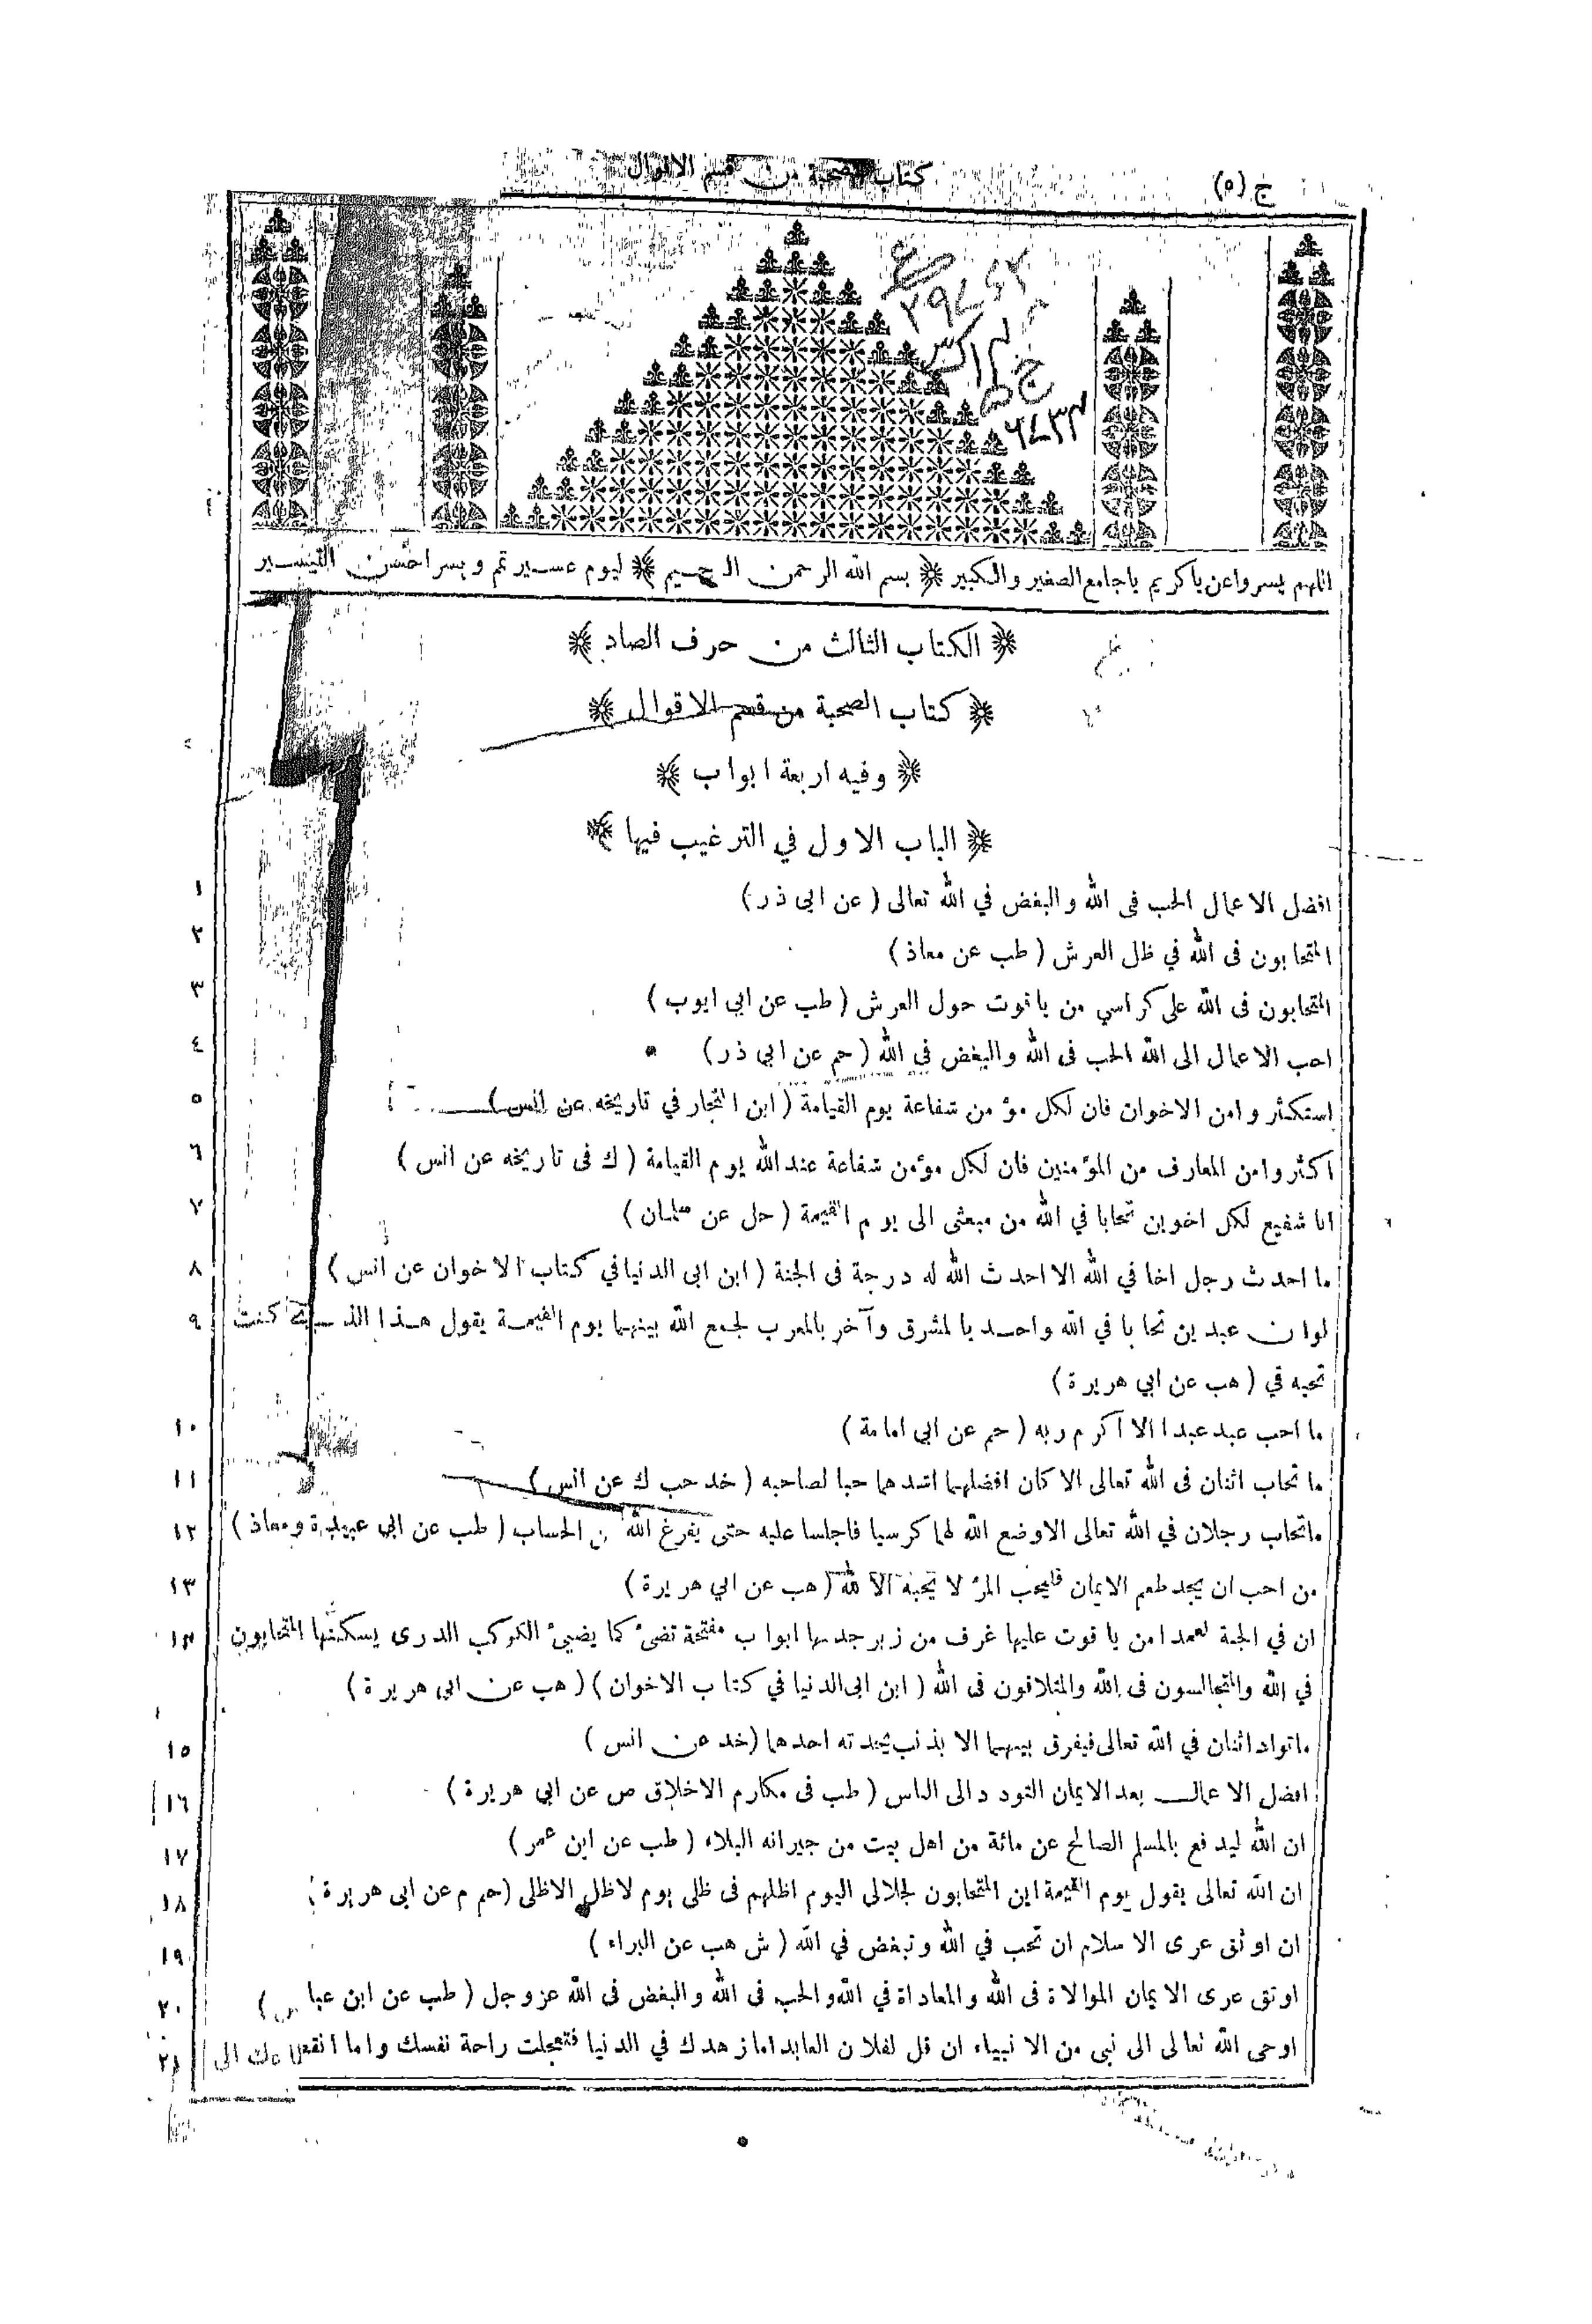 ج (٥)
كتاب الصحبة من قسم الاقوال
اللهم يسر واعن يا كريم يا جامع الصغير والكبير ❋ بسم الله الرحمن الرحيم ❋ ليوم عسير تمم ويسر احسن التيسير
❋ الكتاب الثالث من حرف الصاد ❋
❋ كتاب الصحبة من قسم الاقوال ❋
❋ وفيه اربعة ابواب ❋
❋ الباب الاول في الترغيب فيها ❋
افضل الاعمال الحب فى الله والبغض في الله تعالى ( عن ابى ذر ) ١
المتحابون فى الله في ظل العرش ( طب عن معاذ ) ٢
المتحابون فى الله على كراسي من ياقوت حول العرش ( طب عن ابي ايوب ) ٣
احب الاعمال الى الله الحب فى الله والبغض في الله ( حم عن ابي ذر ) ٤
استكثروا من الاخوان فان لكل مؤمن شفاعة يوم القيامة ( ابن النجار في تاريخه عن انس ) ٥
اكثروا من المعارف من المؤمنين فان لكل مؤمن شفاعة عند الله يوم القيامة ( ك فى تاريخه عن انس ) ٦
انا شفيع لكل اخوين تحابا في الله من مبعثى الى يوم القيمة ( حل عن سلمان ) ٧
ما احدث رجل اخا في الله الا احدث الله له درجة فى الجنة ( ابن ابى الدنيا في كتاب الاخوان عن انس ) ٨
لو ان عبدين تحابا في الله واحد بالمشرق وآخر بالمغرب لجمع الله بينهما يوم القيمة يقول هذا الذي كنت ٩
تحبه في ( هب عن ابي هريرة )
ما احب عبد عبدا الا اكرم ربه ( حم عن ابي امامة ) ١٠
ما تحاب اثنان فى الله تعالى الا كان افضلهما اشدهما حبا لصاحبه ( خد حب ك عن انس ) ١١
ما تحاب رجلان في الله تعالى الا وضع الله لهما كرسيا فاجلسا عليه حتى يفرغ الله من الحساب ( طب عن ابي عبيدة ومعاذ ) ١٢
من احب ان يجد طعم الايمان فليحب المرٴ لا يحبه الا لله ( هب عن ابي هريرة ) ١٣
ان في الجنة لعمدا من ياقوت عليها غرف من زبرجد لها ابواب مفتحة تضىٴ كما يضيىٴ الكوكب الدرى يسكنها المتحابون ١٤
في الله والمتجالسون فى الله والمتلاقون فى الله ( ابن ابى الدنيا في كتاب الاخوان ) ( هب عن ابى هريرة )
ما تواد اثنان في الله تعالى فيفرق بينهما الا بذنب يحدثه احدهما ( خد عن انس ) ١٥
افضل الاعمال بعد الايمان التودد الى الناس ( طب فى مكارم الاخلاق ص عن ابي هريرة ) ١٦
ان الله ليدفع بالمسلم الصالح عن مائة من اهل بيت من جيرانه البلاء ( طب عن ابن عمر ) ١٧
ان الله تعالى يقول يوم القيمة اين المتحابون لجلالى اليوم اظلهم فى ظلى يوم لا ظل الا ظلى ( حم م عن ابى هريرة ) ١٨
ان اوثق عرى الاسلام ان تحب في الله وتبغض في الله ( ش هب عن البراء ) ١٩
اوثق عرى الايمان الموالاة فى الله والمعاداة في الله والحب فى الله والبغض فى الله عز وجل ( طب عن ابن عباس ) ٢٠
اوحى الله تعالى الى نبى من الانبياء ان قل لفلان العابد اما زهدك في الدنيا فتعجلت راحة نفسك واما انقطاعك الى ٢١